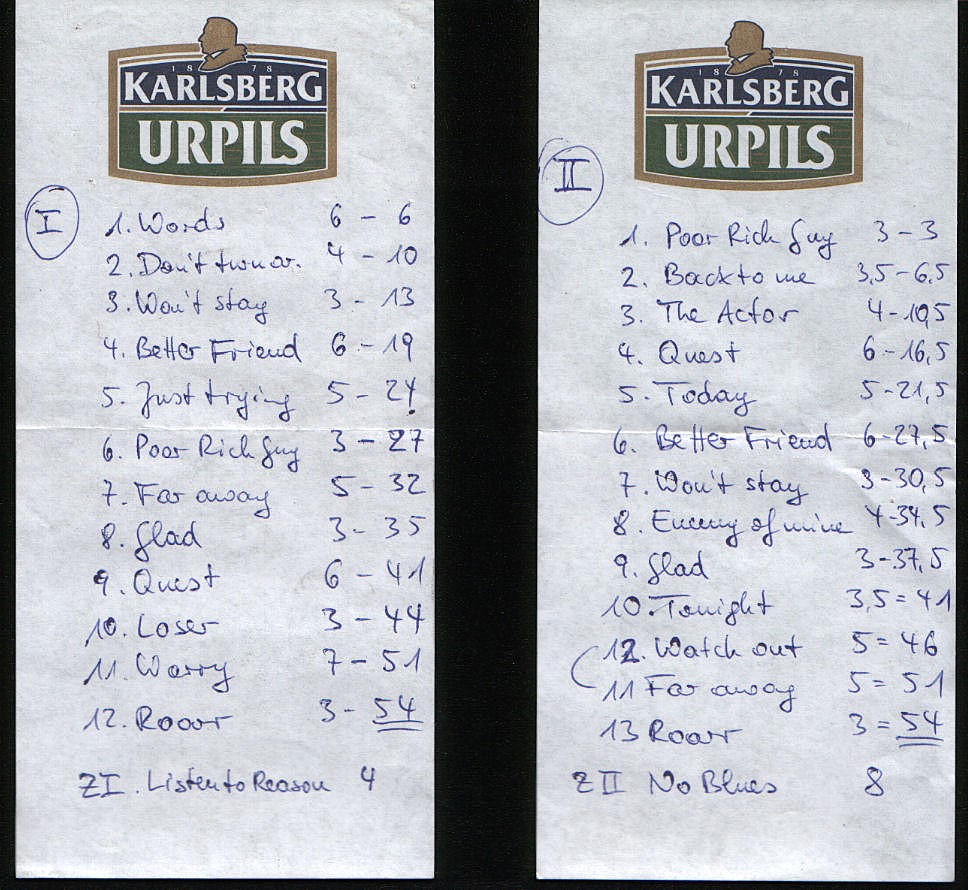 1878
KARLSBERG
URPILS
I
1. Words 6 - 6
2. Don't turn or. 4 - 10
3. Won't stay 3 - 13
4. Better Friend 6 - 19
5. Just trying 5 - 24
6. Poor Rich Guy 3 - 27
7. Far away 5 - 32
8. Glad 3 - 35
9. Quest 6 - 41
10. Loser 3 - 44
11. Worry 7 - 51
12. Roarr 3 - 54
ZI. Listen to Reason 4
1878
KARLSBERG
URPILS
II
1. Poor Rich Guy 3 - 3
2. Back to me 3,5 - 6,5
3. The Actor 4 - 10,5
4. Quest 6 - 16,5
5. Today 5 - 21,5
6. Better Friend 6 - 27,5
7. Won't stay 3 - 30,5
8. Enemy of mine 4 - 34,5
9. Glad 3 - 37,5
10. Tonight 3,5 = 41
12. Watch out 5 = 46
11 Far away 5 = 51
13 Roarr 3 = 54
Z II No Blues 8